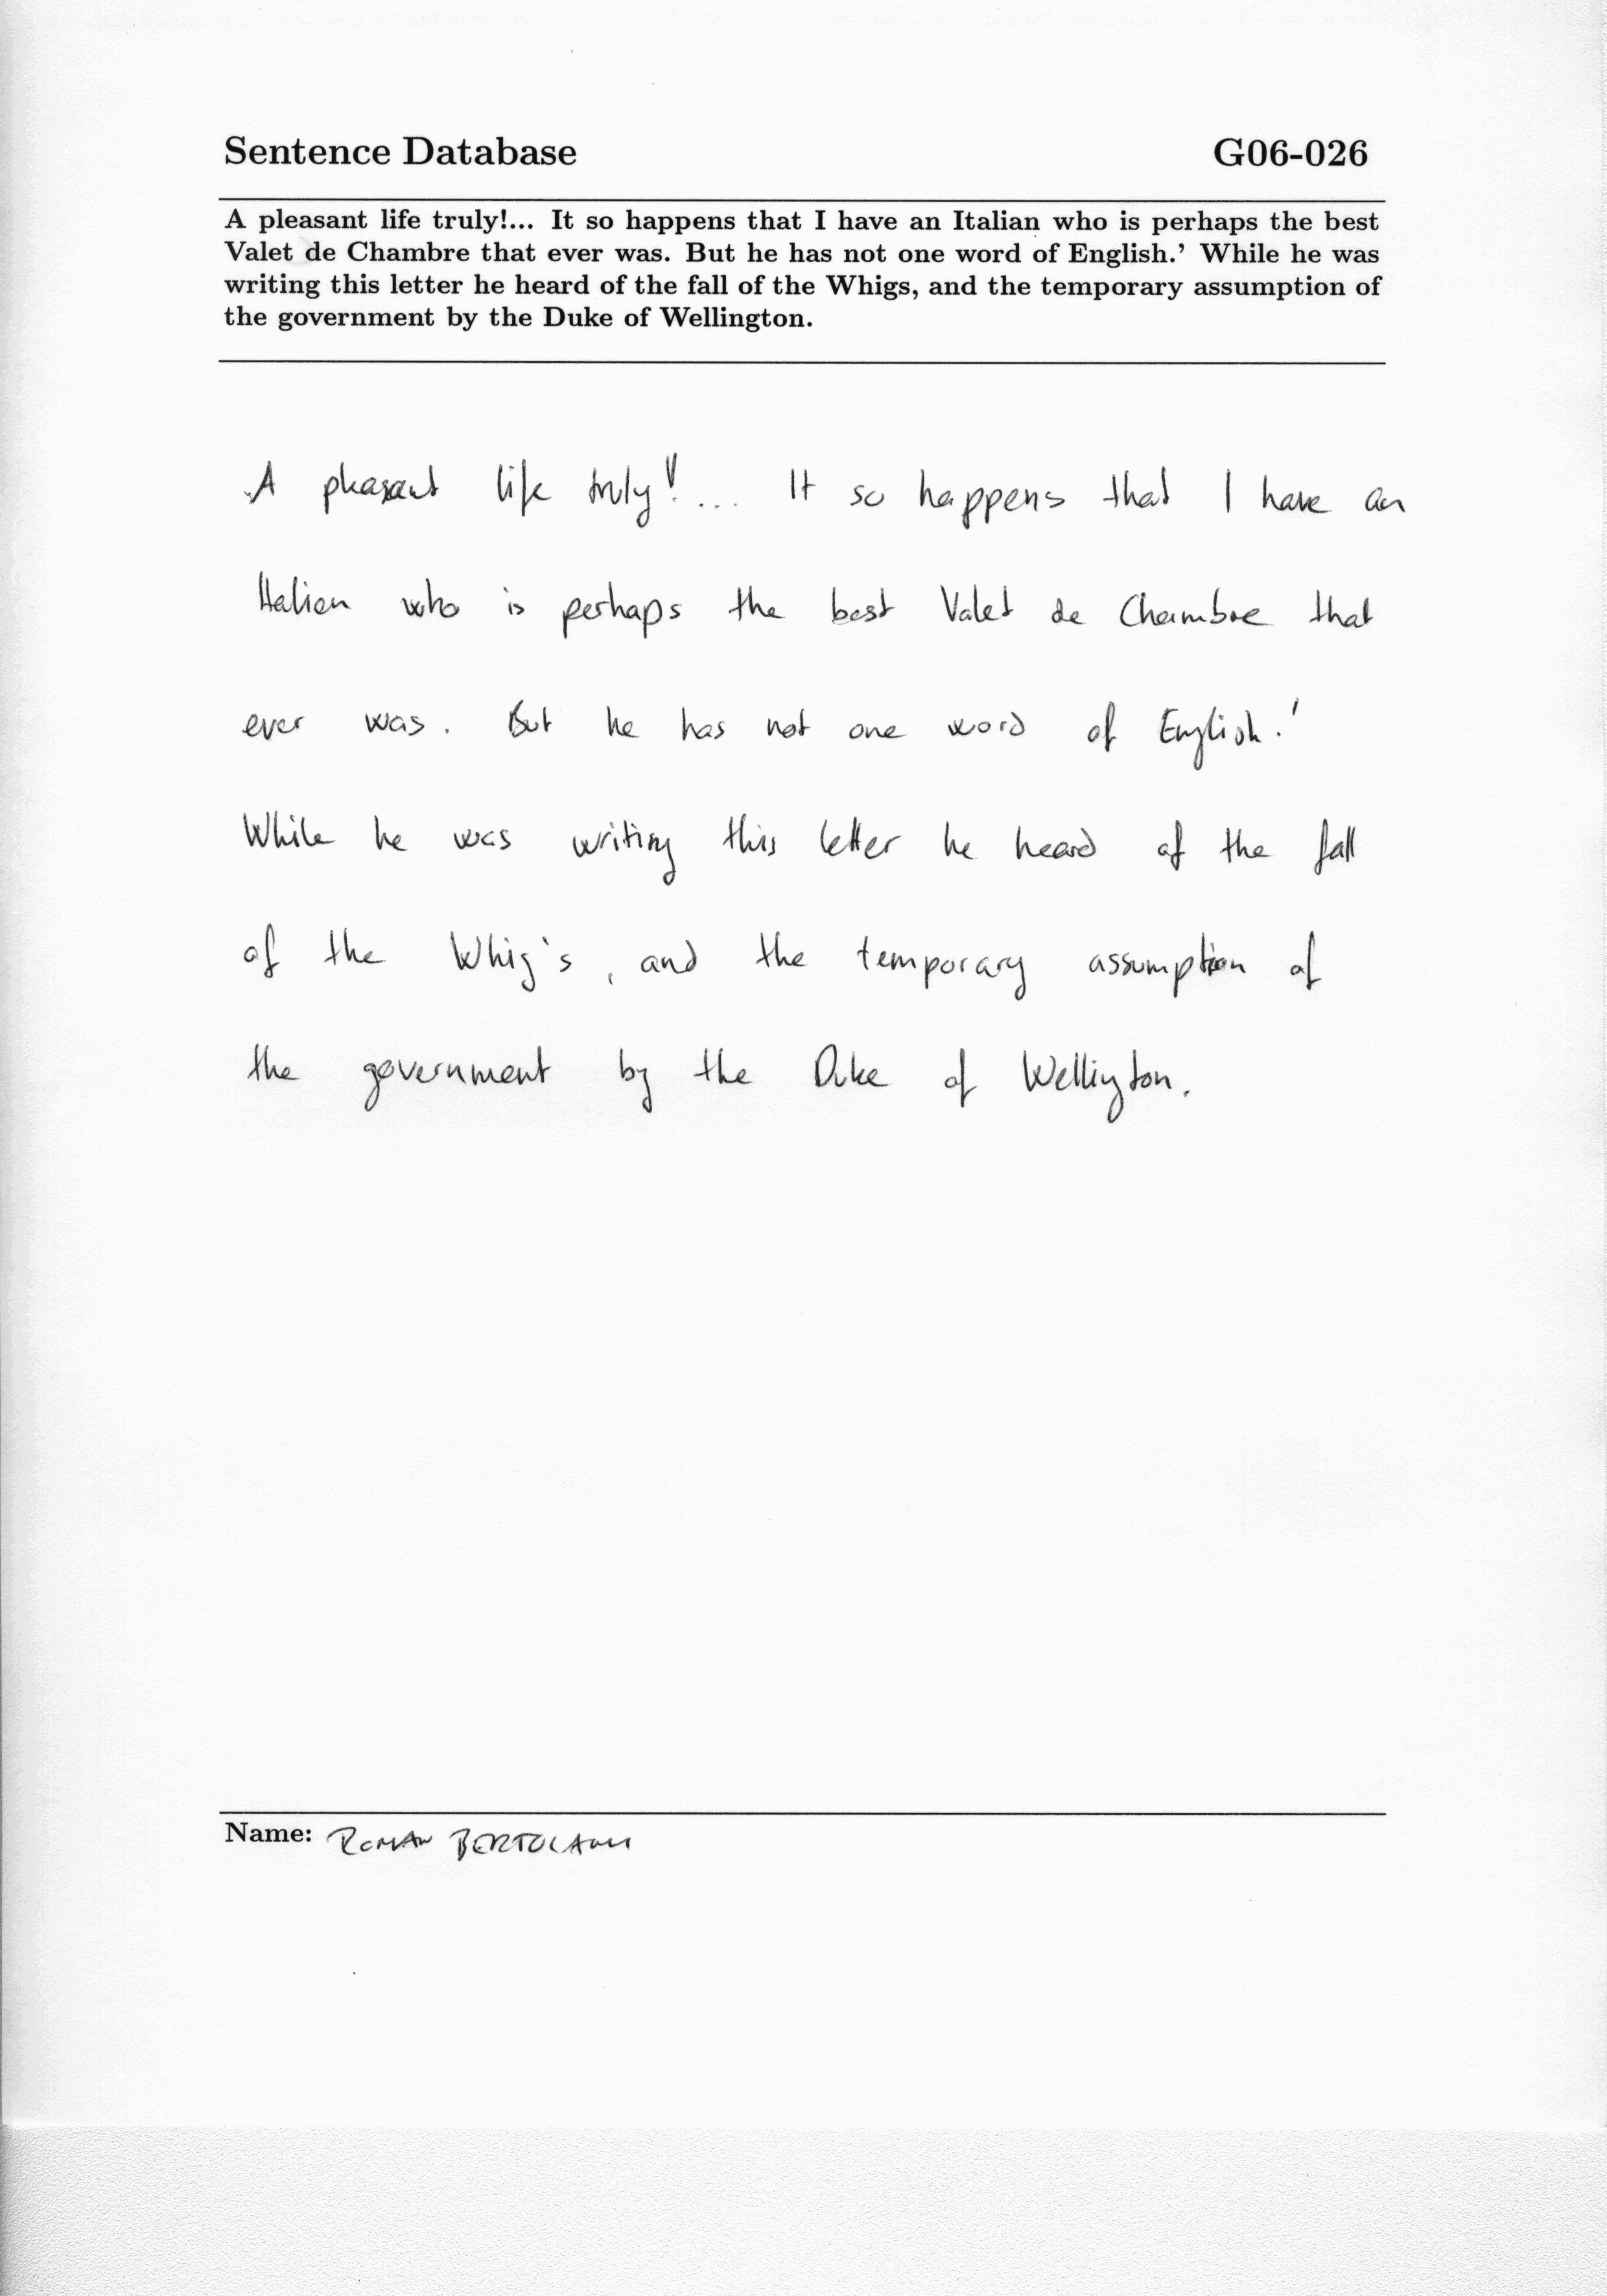 Sentence Database G06-026
A pleasant life truly!... It so happens that I have an Italian who is perhaps the best
Valet de Chambre that ever was. But he has not one word of English.' While he was
writing this letter he heard of the fall of the Whigs, and the temporary assumption of
the government by the Duke of Wellington.
A pleasant life truly!... It so happens that I have an
Italian who is perhaps the best Valet de Chambre that
ever was. But he has not one word of English.'
While he was writing this letter he heard of the fall
of the Whig's, and the temporary assumption of
the government by the Duke of Wellington.
Name: ROMAN BERTOLAMI